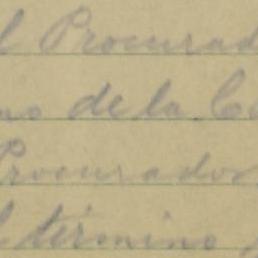 l Procurad
de la C
Procurador
l término